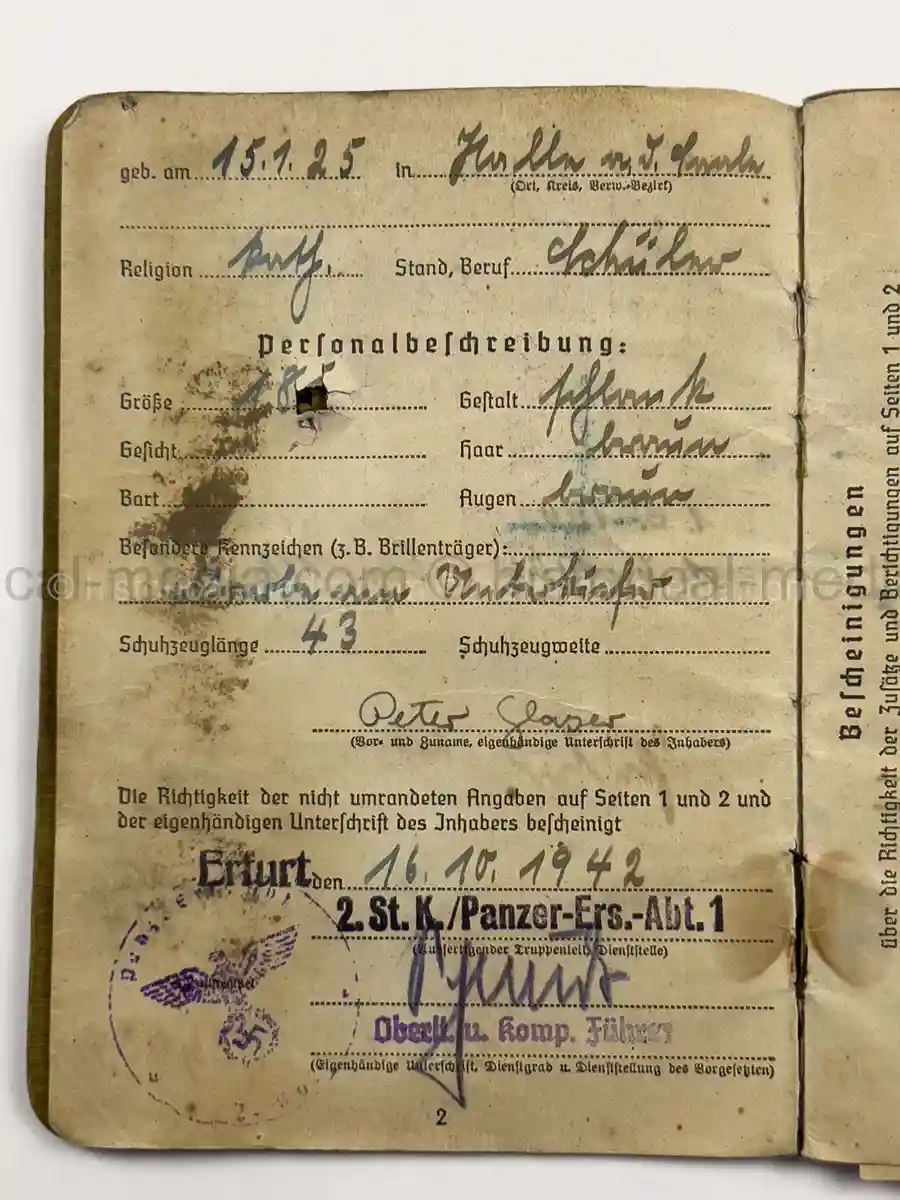 geb. am 15.1.25 in Halle a. d. Saale
(Ort, Kreis, Verw.-Bezirk)
Religion kath. Stand, Beruf Schüler
Personalbeschreibung:
Größe 18 Gestalt schlank
Gesicht Haar braun
Bart Augen braun
Besondere Kennzeichen (z.B. Brillenträger):
Narbe am Unterkiefer
Schuhzeuglänge 43 Schuhzeugweite
Peter Glaser
(Vor- und Zuname, eigenhändige Unterschrift des Inhabers)
Die Richtigkeit der nicht umrandeten Angaben auf Seiten 1 und 2 und
der eigenhändigen Unterschrift des Inhabers bescheinigt
Erfurt den 16. 10. 1942
2. St. K./Panzer-Ers.-Abt. 1
(Ausfertigender Truppenteil, Dienststelle)
Oberlt. u. Komp. Führer
(Eigenhändige Unterschrift, Dienstgrad u. Dienststellung des Vorgesetzten)
2
Bescheinigungen
über die Richtigkeit der Zusätze und Berichtigungen auf Seiten 1 und 2